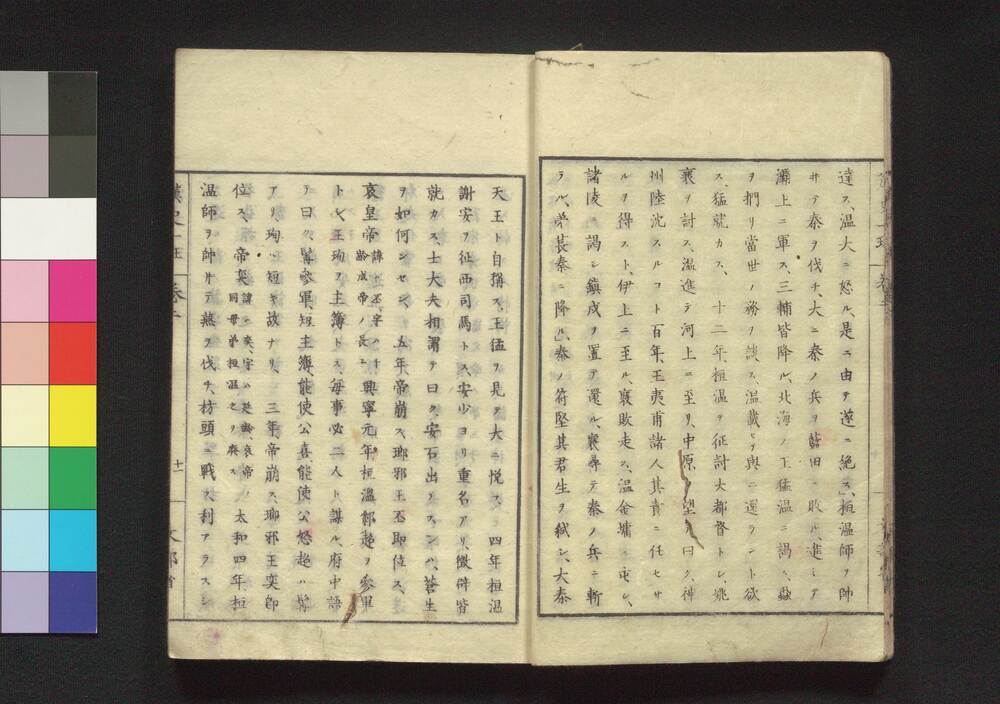 達ス、温大ニ怒ル、是ニ由テ遂ニ絶ス」桓温師ヲ帥
井テ秦ヲ伐チ、大ニ秦ノ兵ヲ藍田ニ敗ル、進ミテ
灞上ニ軍ス、三輔皆降ル、北海ノ王猛温ニ謁ス、蝨
ヲ捫リ當世ノ務ヲ談ス、温蔵セヲ與ニ還ラント欲
ス、猛就カス、十二年、桓温ヲ征討大都督トシ、姚
襄ヲ討ス、温進テ河上ニ至リ、中原ヲ望ノ曰ク、神
州陸沈スルコト百年、王夷甫諸人其責ニ任セサ
ルヲ得スト、伊上ニ至ル、襄敗走ス、温金墉ニ屯シ、
諸陵ニ謁シ鎮戍ヲ置テ還ル、襄尋テ秦ノ兵ニ斬
ラル、弟萇秦ニ降ル」秦ノ符堅其君生ヲ弑シ、大秦
天王ト自稱ス、王猛ヲ見テ大ニ悦ス」四年桓温
謝安ヲ征西司馬トス、安少ヨリ重名アリ、徴辟皆
就カス、士大夫相謂テ曰ク、安石出テスンハ、蒼生
ヲ如何ンセン、五年帝崩ス、瑯邪王丕即位ス、
哀皇帝 諱ハ丕、字ハ千齢成帝ノ長子 興寧元年桓温郗超ヲ參軍
トシ、王珣ヲ主簿トス、毎事必二人ト謀ル、府中語
テ曰ク、髯參軍、短主簿、能使公喜能使公怒超ハ髯
アリ、珣ハ短キ故ナリ、三年帝崩ス、瑯邪王奕即
位ス、帝奕 諱ハ奕字ハ延齢、哀帝ノ同母弟桓温セヲ廢ス 太和四年、桓
温師ヲ帥井テ燕ヲ伐ツ、枋頭ニ戰ス利アラスシ
漢史一班 巻二 十一 文部省